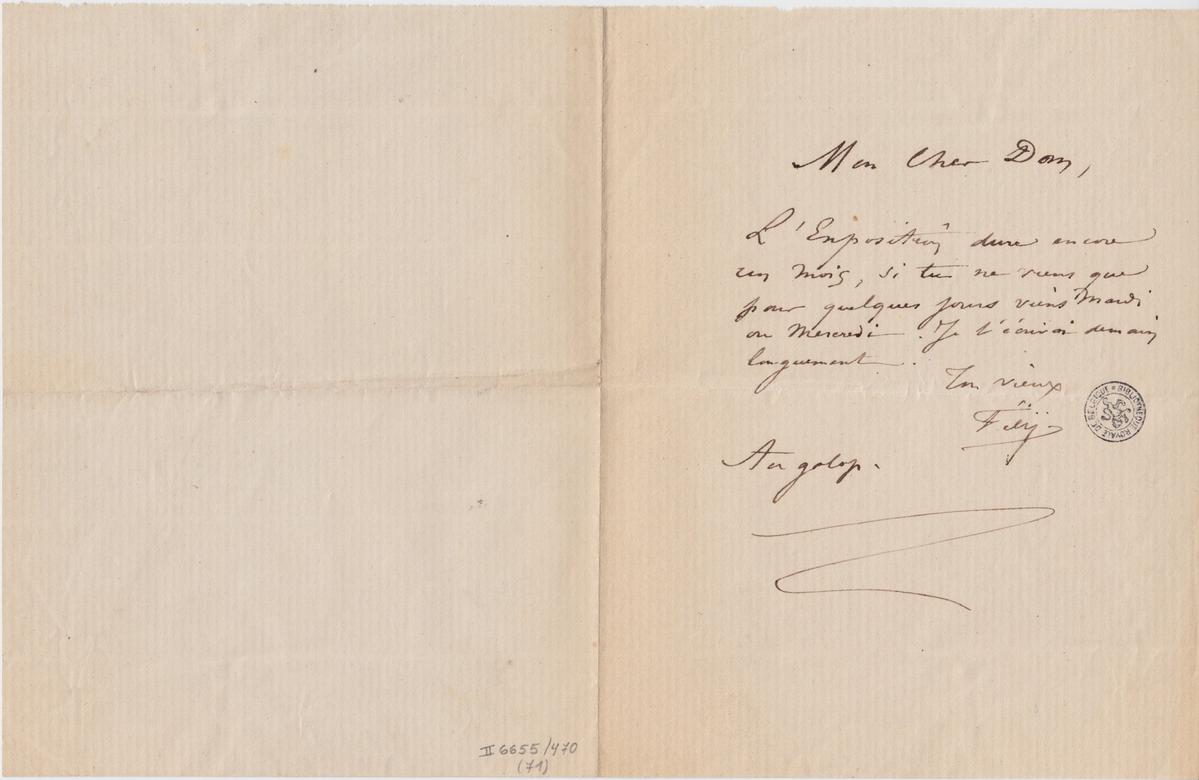 Mon Cher Dom,
L'Exposition dure encore
un mois, si tu ne viens que
pour quelques jours viens Mardi
ou Mercredi. Je t'écrirai demain
longuement.
Ton vieux
Fély
Au galop.
BIBLIOTHEQUE ROYALE DE BELGIQUE
II 6655/470
(71)